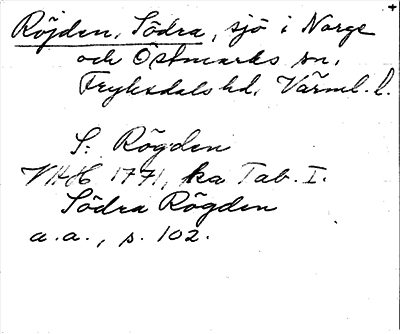 Röjden, Södra, sjö i Norge
och Östmarks sn,
Fryksdals hd, Värml. l.
S: Rögden
VAH 1771, ka Tab. I.
Södra Rögden
a.a., s. 102.